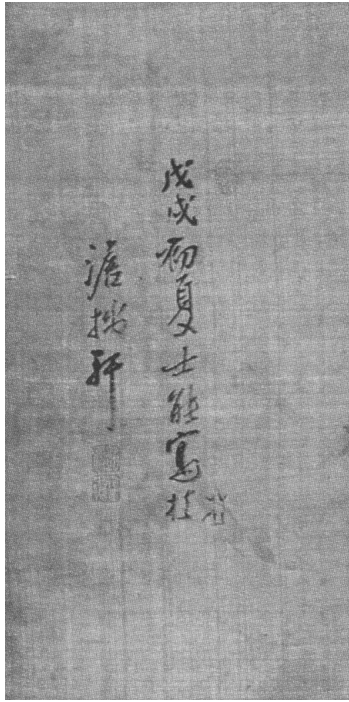 戊戌初夏士能寫於
澹拙軒